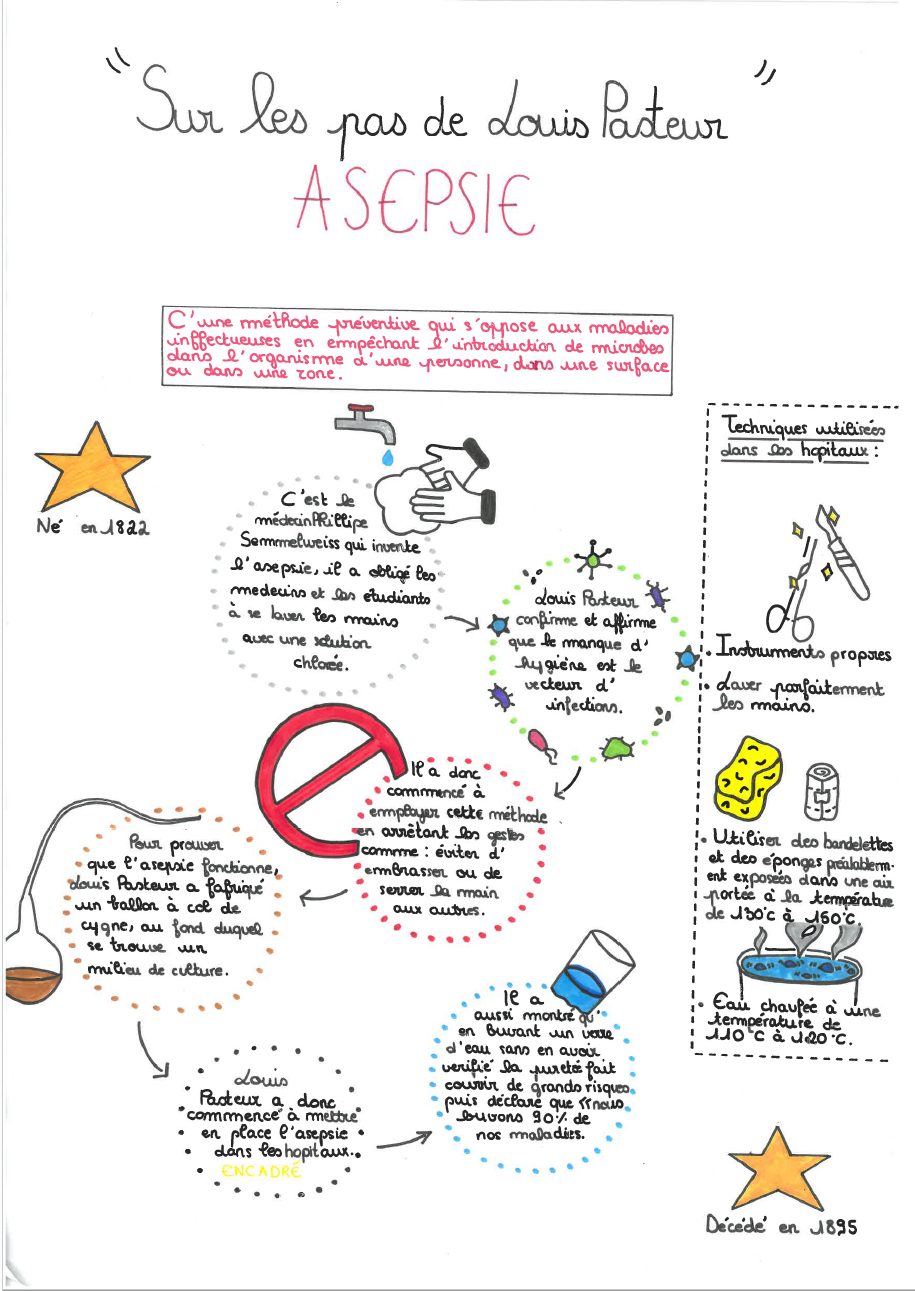 " Sur les pas de Louis Pasteur "
ASEPSIE
C'une méthode préventive qui s'oppose aux maladies
inffectueuses en empêchant l'introduction de microbes
dans l'organisme d'une personne, dans une surface
ou dans une zone.
Né en 1822
C'est le
médecin Phillipe
Semmelweiss qui invente
l'asepsie, il a obligé les
medecins et les étudiants
à se laver les mains
avec une solution
chlorée.
Louis Pasteur
confirme et affirme
que le manque d'
hygiène est le
vecteur d'
infections.
Il a donc
commencé à
employer cette méthode
en arrêtant les gestes
comme : éviter d'
embrasser ou de
serrer la main
aux autres.
Pour prouver
que l'asepsie fonctionne,
Louis Pasteur a fafriqué
un ballon à col de
cygne, au fond duquel
se trouve un
milieu de culture.
Louis
Pasteur a donc
commencé à mettre
en place l'asepsie
dans les hopitaux.
ENCADRÉ
Il a
aussi montré qu'
en buvant un verre
d'eau sans en avoir
verifié la pureté fait
courir de grands risques
puis déclaré que «nous
buvons 90% de
nos maladies.
Techniques utilisées
dans les hopitaux :
• Instruments propres
• Laver parfaitement
les mains.
• Utiliser des bandelettes
et des éponges préalablem-
ent exposées dans une air
portée à la température
de 130°c à 150°c
• Eau chaufée à une
température de
110°C à 120°C.
Décédé en 1895